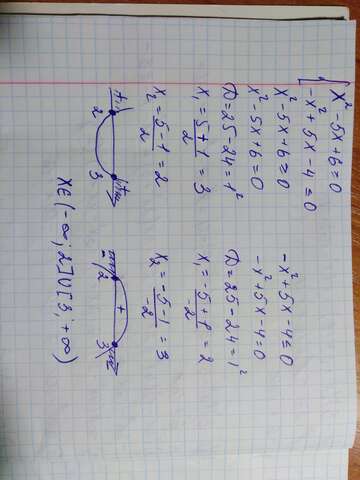 x² - 5x + 6 ≥ 0
-x² + 5x - 4 ≤ 0
x² - 5x + 6 ≥ 0
x² - 5x + 6 = 0
D = 25 - 24 = 1²
x₁ = (5 + 1)/2 = 3
x₂ = (5 - 1)/2 = 2
2 3
-x² + 5x - 4 ≤ 0
-x² + 5x - 4 = 0
D = 25 - 24 = 1²
x₁ = (-5 + 1)/-2 = 2
x₂ = (-5 - 1)/-2 = 3
2 + 3
x∈(-∞; 2]∪[3; +∞)